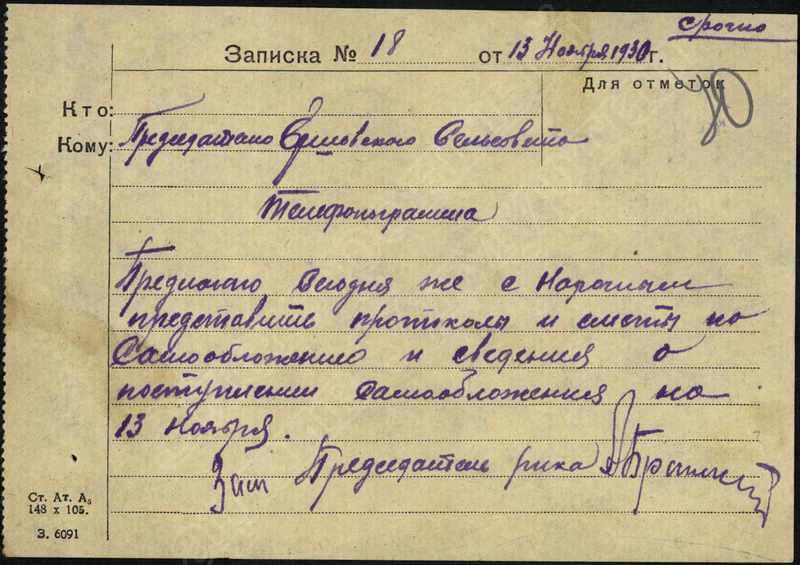 срочно
Записка № 18 от 13 Ноября 1930 г.
Для отметок
80
Кто:
Кому: Председателю Ершовского Сельсовета
Телефонограмма
Предлагаю сегодня же с Нарочным
представить протоколы и сметы по
Самообложению и сведения о
поступлении самообложения на
13 ноября.
Зам Председатель рика
Ст. Ат. А₅
148 х 105.
З. 6091